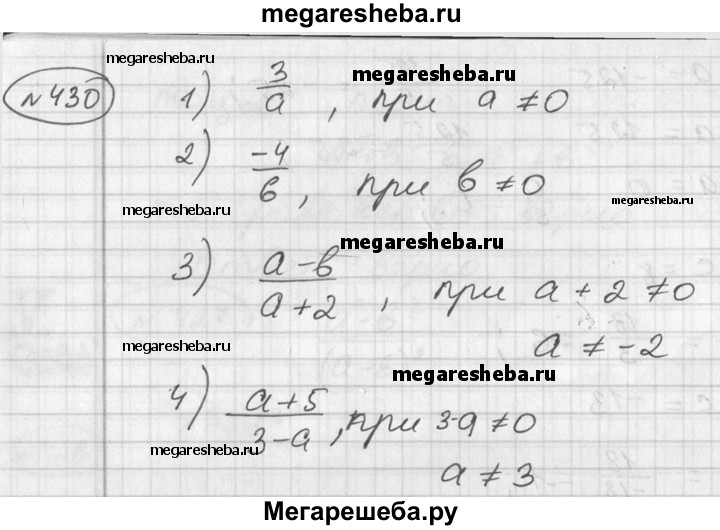 megaresheba.ru
megaresheba.ru
№430
1) 3/a, при a ≠ 0
megaresheba.ru
megaresheba.ru
2) -4/b, при b ≠ 0
megaresheba.ru
megaresheba.ru
megaresheba.ru
3) a-b/a+2, при a+2 ≠ 0
a ≠ -2
megaresheba.ru
megaresheba.ru
4) a+5/3-a, при 3-a ≠ 0
megaresheba.ru
a ≠ 3
Мегарешеба.ру